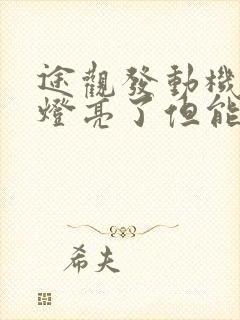 途觀發動機
燈亮了但能
希夫